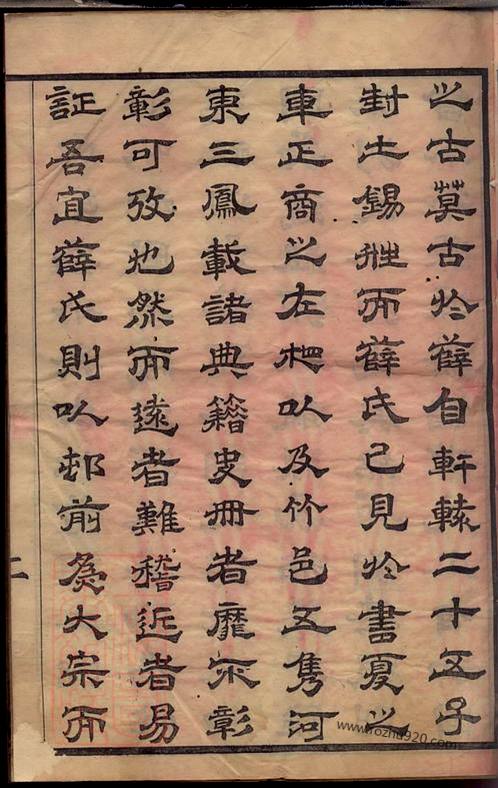 之古莫古於薛自軒轅二十五子
封土錫姓而薛氏已見於書夏之
車正商之左相以及竹邑五雋河
東三鳳載諸典籍史冊者靡不彰
彰可攷也然而遠者難稽近者易
証吾宜薛氏則以邨前為大宗而
二
www.rozhu920.com